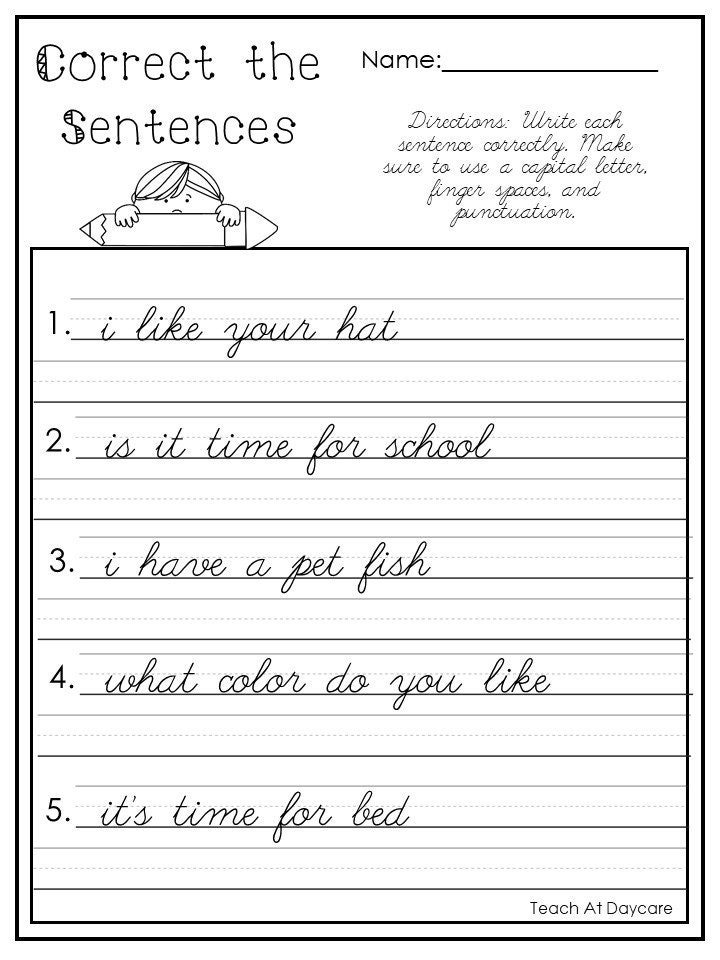 Correct the
Sentences
Name:
Directions: Write each
sentence correctly. Make
sure to use a capital letter,
finger spaces, and
punctuation.
1. i like your hat
2. is it time for school
3. i have a pet fish
4. what color do you like
5. it's time for bed
Teach At Daycare